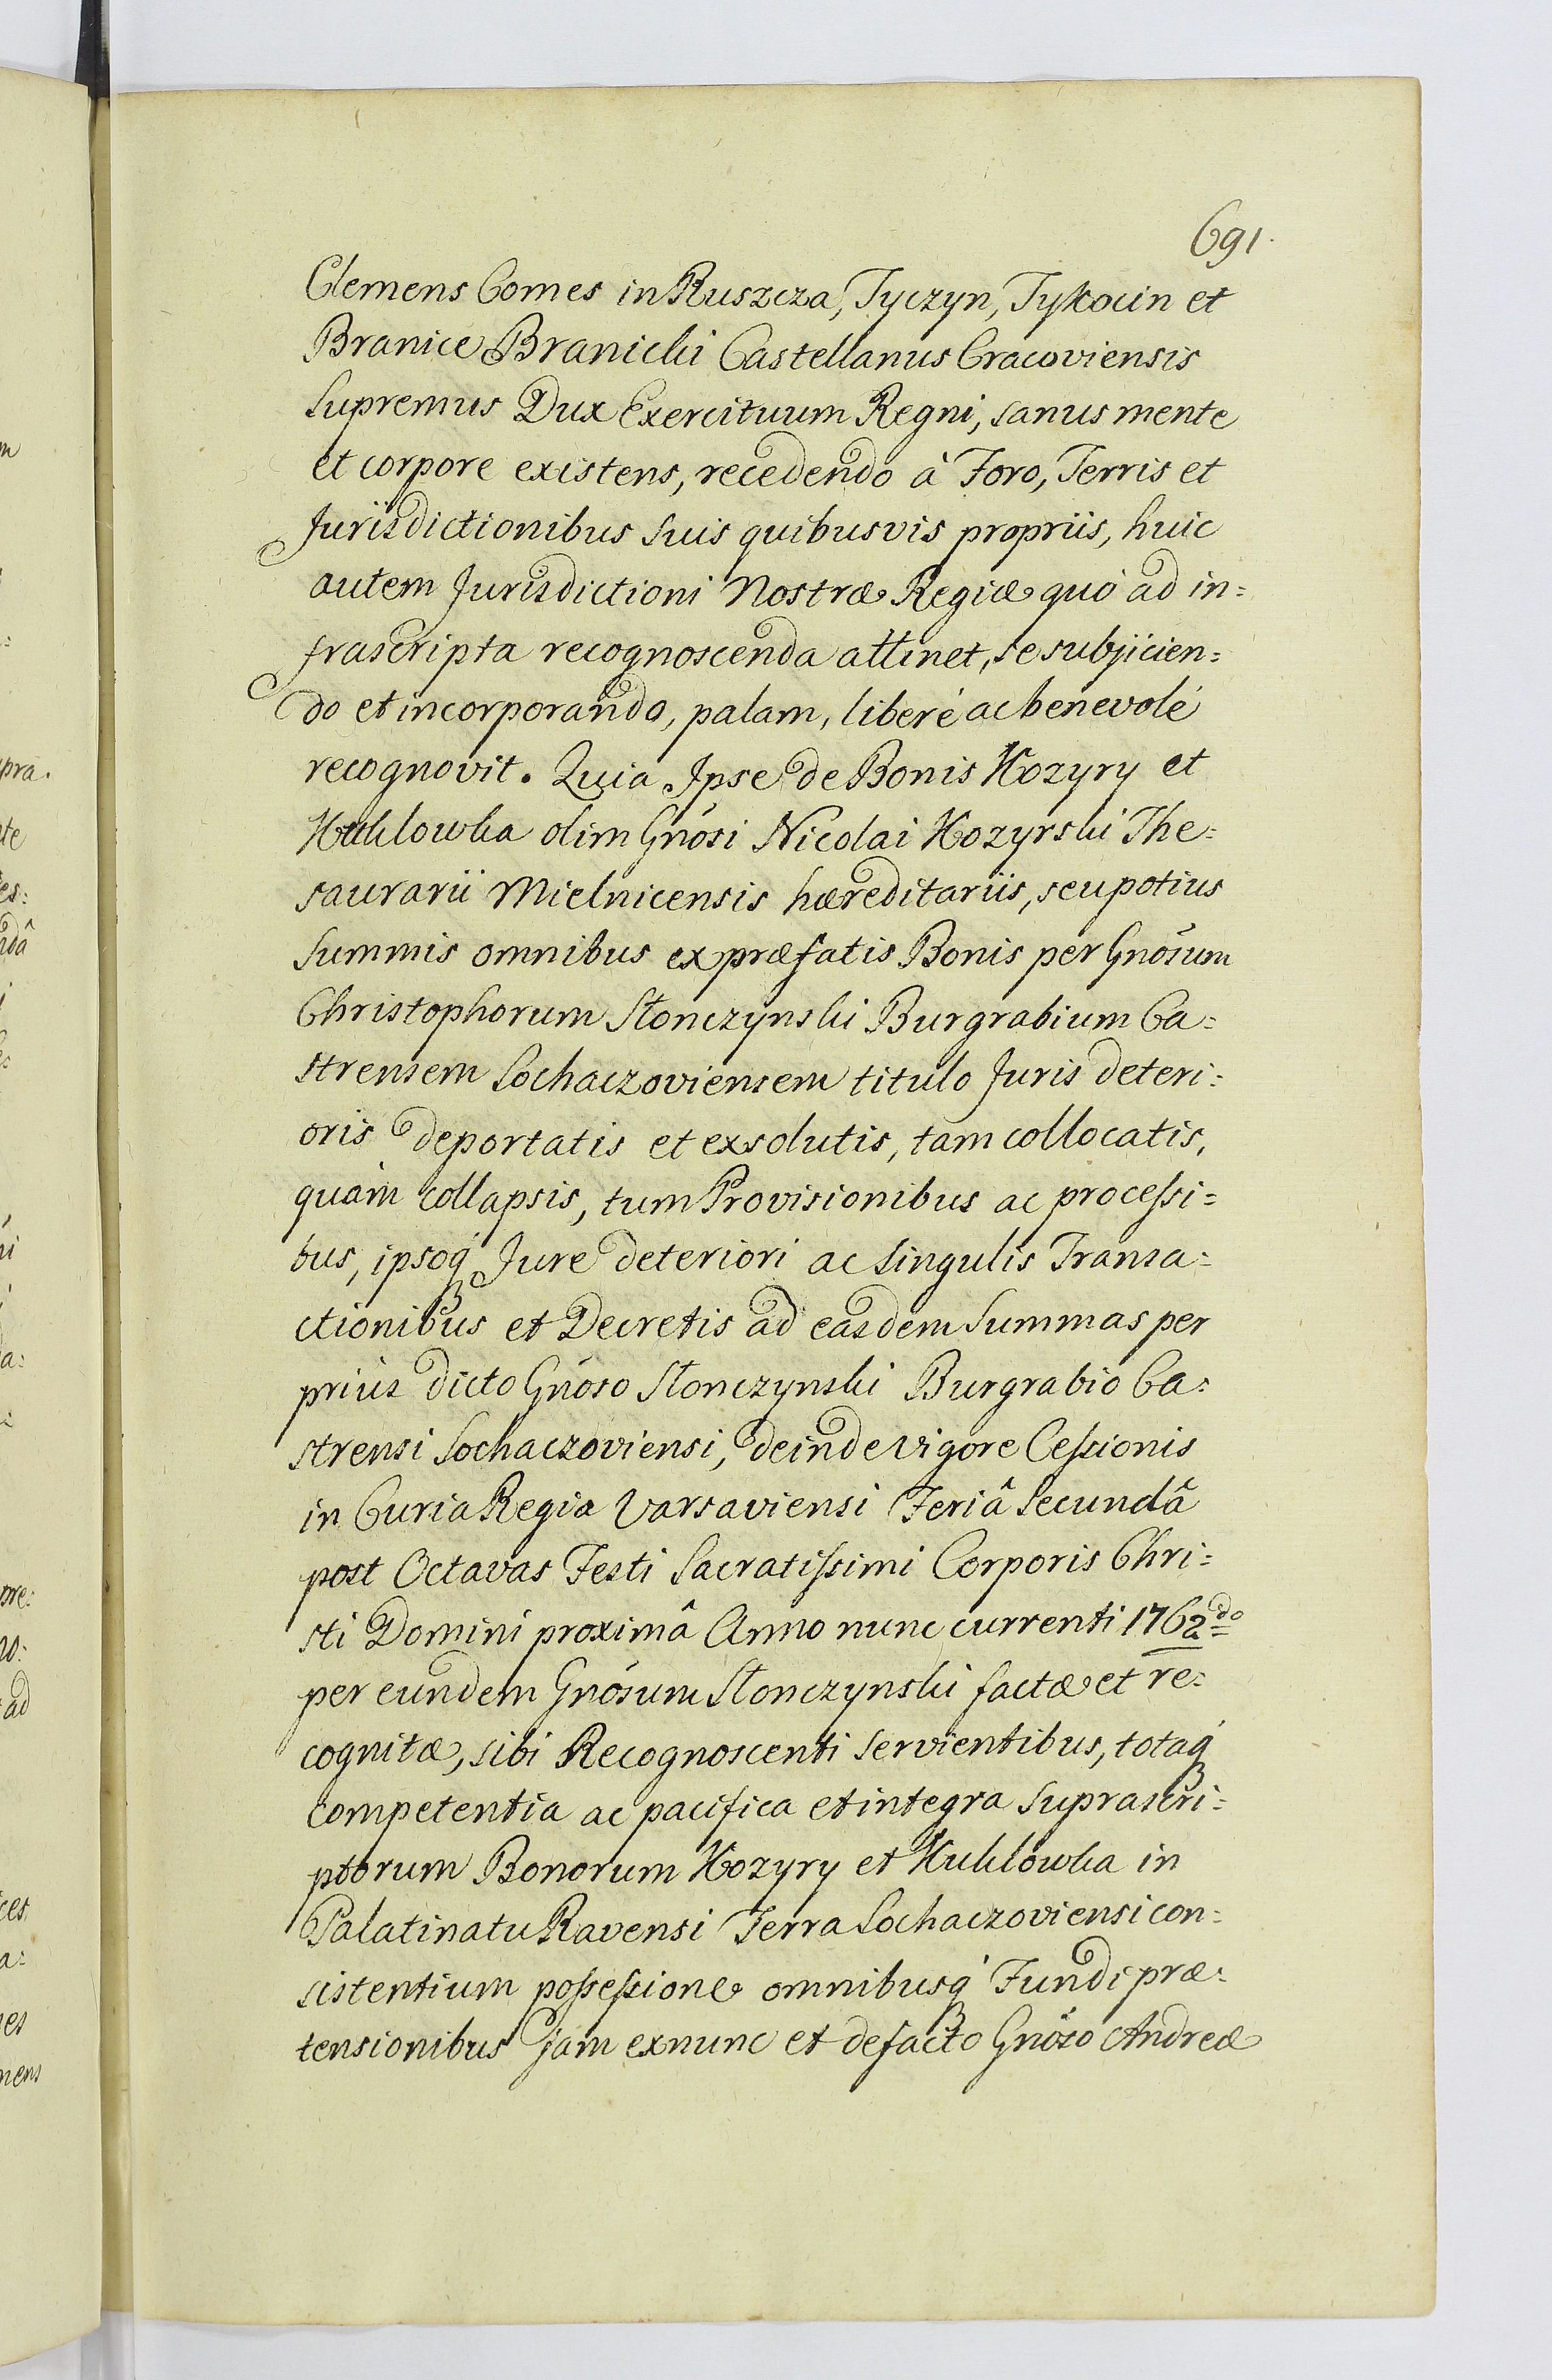 691.
Clemens Comes in Ruszcza, Tyczyn, Tykocin et
Branice Branicki Castellanus Cracoviensis
Supremus Dux Exercituum Regni, sanus mente
et corpore existens, recedendo à Foro, Terris et
Jurisdictionibus suis quibusvis propriis, huic
autem Jurisdictioni Nostræ Regiæ quò ad in=
frascripta recognoscenda attinet, se subjicien=
do et incorporando, palam, liberè ac benevolè
recognovit. Quia Ipse de Bonis Kozyry et
Kuklowka olim Gnôsi Nicolai Kozyrski The=
saurarii Mielnicensis hæreditariis, seu potius
Summis omnibus ex præfatis Bonis per Gnôsum
Christophorum Stonczynski Burgrabium Ca=
strensem Sochaczoviensem titulo Juris deteri=
oris deportatis et exsolutis, tam collocatis,
quàm collapsis, tum Provisionibus ac processi=
bus, ipsoq́ Jure deteriori ac singulis Transa=
ctionibus et Decretis ad easdem Summas per
priùs dicto Gnôso Stonczynski Burgrabio Ca=
strensi Sochaczoviensi, deinde vigore Cessionis
in Curia Regia Varsaviensi Feriâ Secundâ
post Octavas Festi Sacratissimi Corporis Chri=
sti Domini proximâ Anno nunc currenti 1762do
per eundem Gnôsum Stonczynski factæ et re=
cognitæ, sibi Recognoscenti servientibus, totaq́
competentia ac pacifica et integra suprascri=
ptorum Bonorum Kozyry et Kuklowka in
Palatinatu Ravensi Terra Sochaczoviensi con=
sistentium possessione omnibusq́ Fundi præ=
tensionibus jam exnunc et defacto Gnôso Andreæ
pra.
te
es:
ndâ
a:
me:
no:
ad
ces
a:
nes
mens